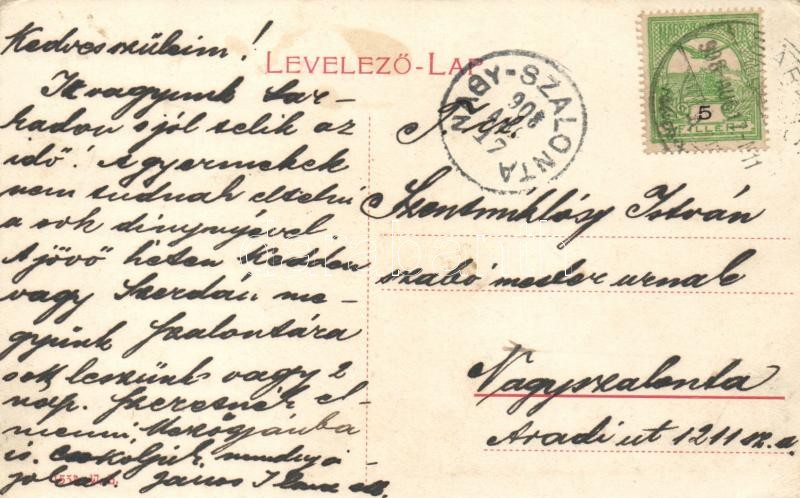 Kedves szüleim!
Itt vagyunk Sar-
kadon s jól telik az
idő! A gyermekek
nem tudnak eltelni
a sok dinynyével.
A jövő héten Kedden
vagy Szerdán me-
gyünk Szalontára
ott leszünk vagy 2
nap. Szeretnék el-
menni Mezőgyánba
is. Csokoljuk mindnyá-
jokat. János Ilona
LEVELEZŐ-LAP
NAGY-SZALONTA
908
17
5
FILLÉR
T. cz.
Szentmiklósy István
szabó mester urnak
Nagyszalonta
Aradi ut 1211 sz. a.